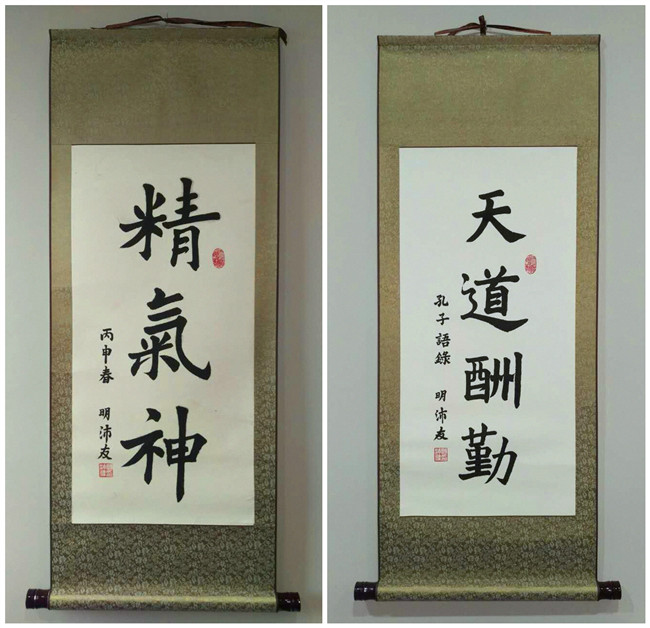 精氣神
丙申春 明沛友
天道酬勤
孔子語錄 明沛友